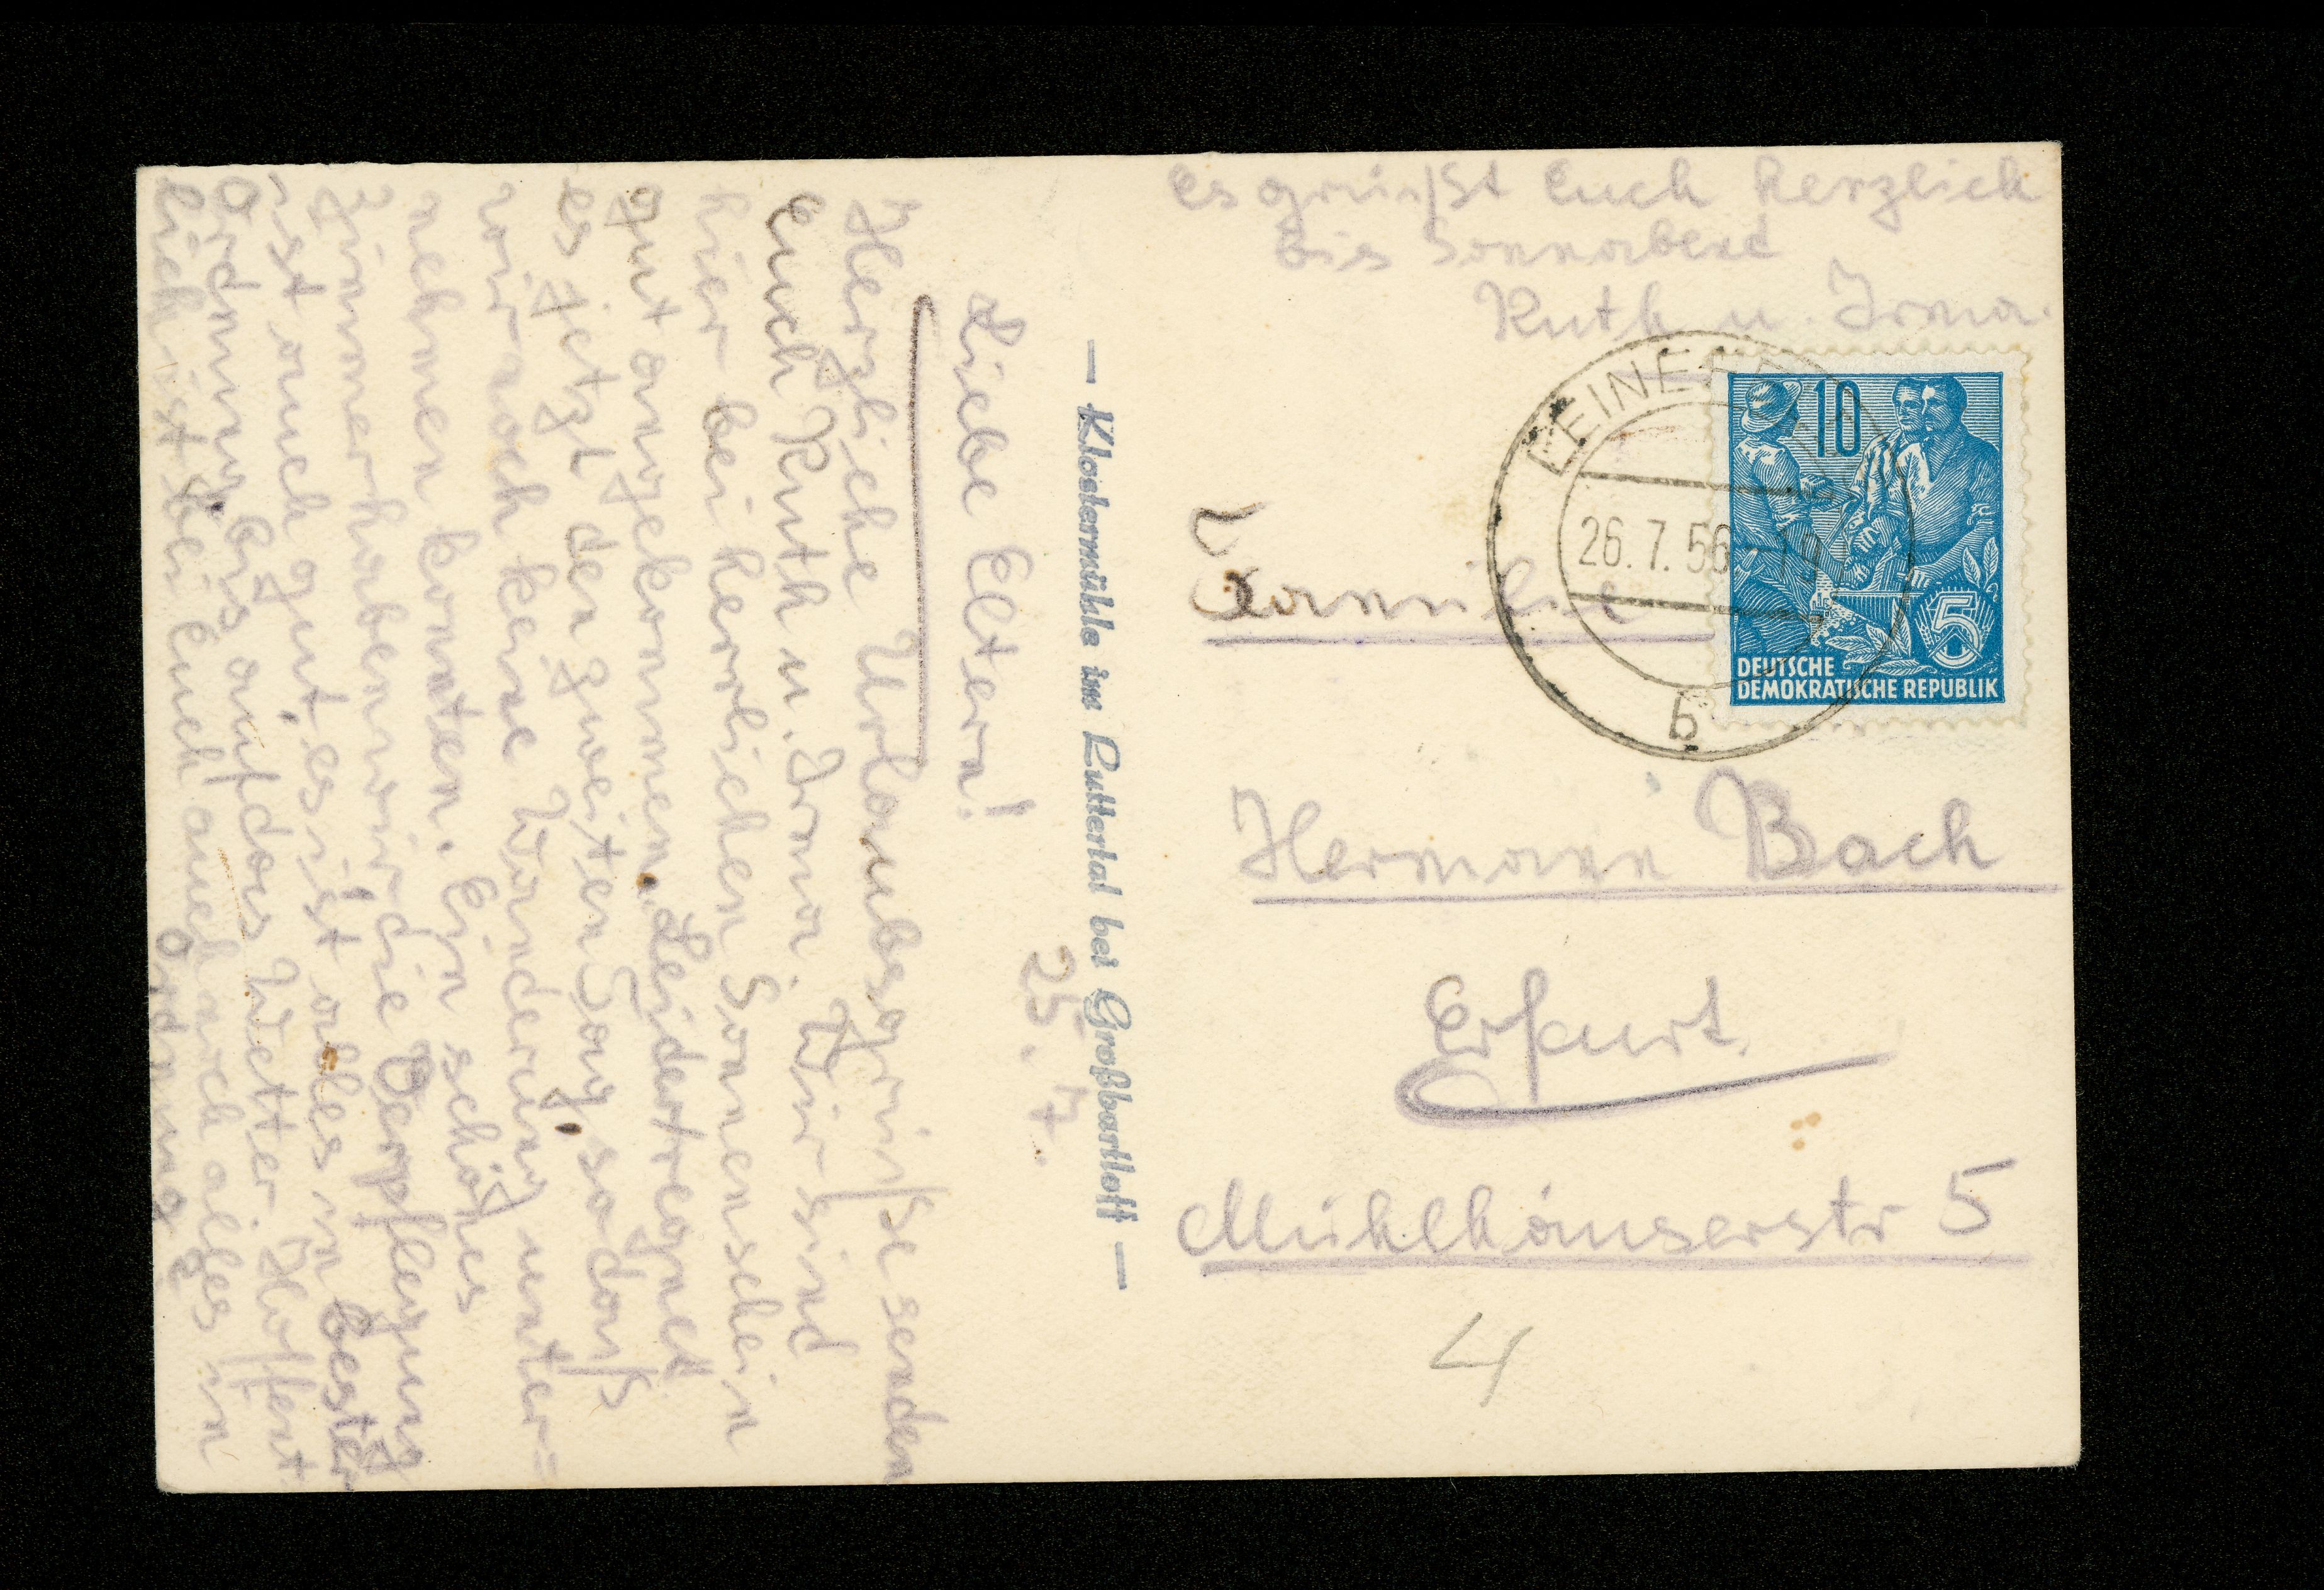 25. 7.
Liebe Eltern!
Herzliche Urlaubsgrüße senden
Euch Ruth u. Irma. Wir sind
hier bei herrlichen Sonnenschein
gut angekommen. Leider regnet
es jetzt den zweiten Tag so daß
wir noch keine Wanderung unter=
nehmen konnten. Ein schönes
Zimmer haben wir die Verpflegung
ist auch gut, es ist alles in bester
Ordnung bis auf das Wetter. Hoffent
lich ist bei Euch auch noch alles in
Ordnung.
— Klostermühle im Luttertal bei Großbartloff —
Es grüßt Euch herzlich
bis Sonnabend
Ruth u. Irma.
26. 7. 56
b
10
5
DEUTSCHE
DEMOKRATISCHE REPUBLIK
Familie
Hermann Bach
Erfurt
Mühlhäuserstr 5
4